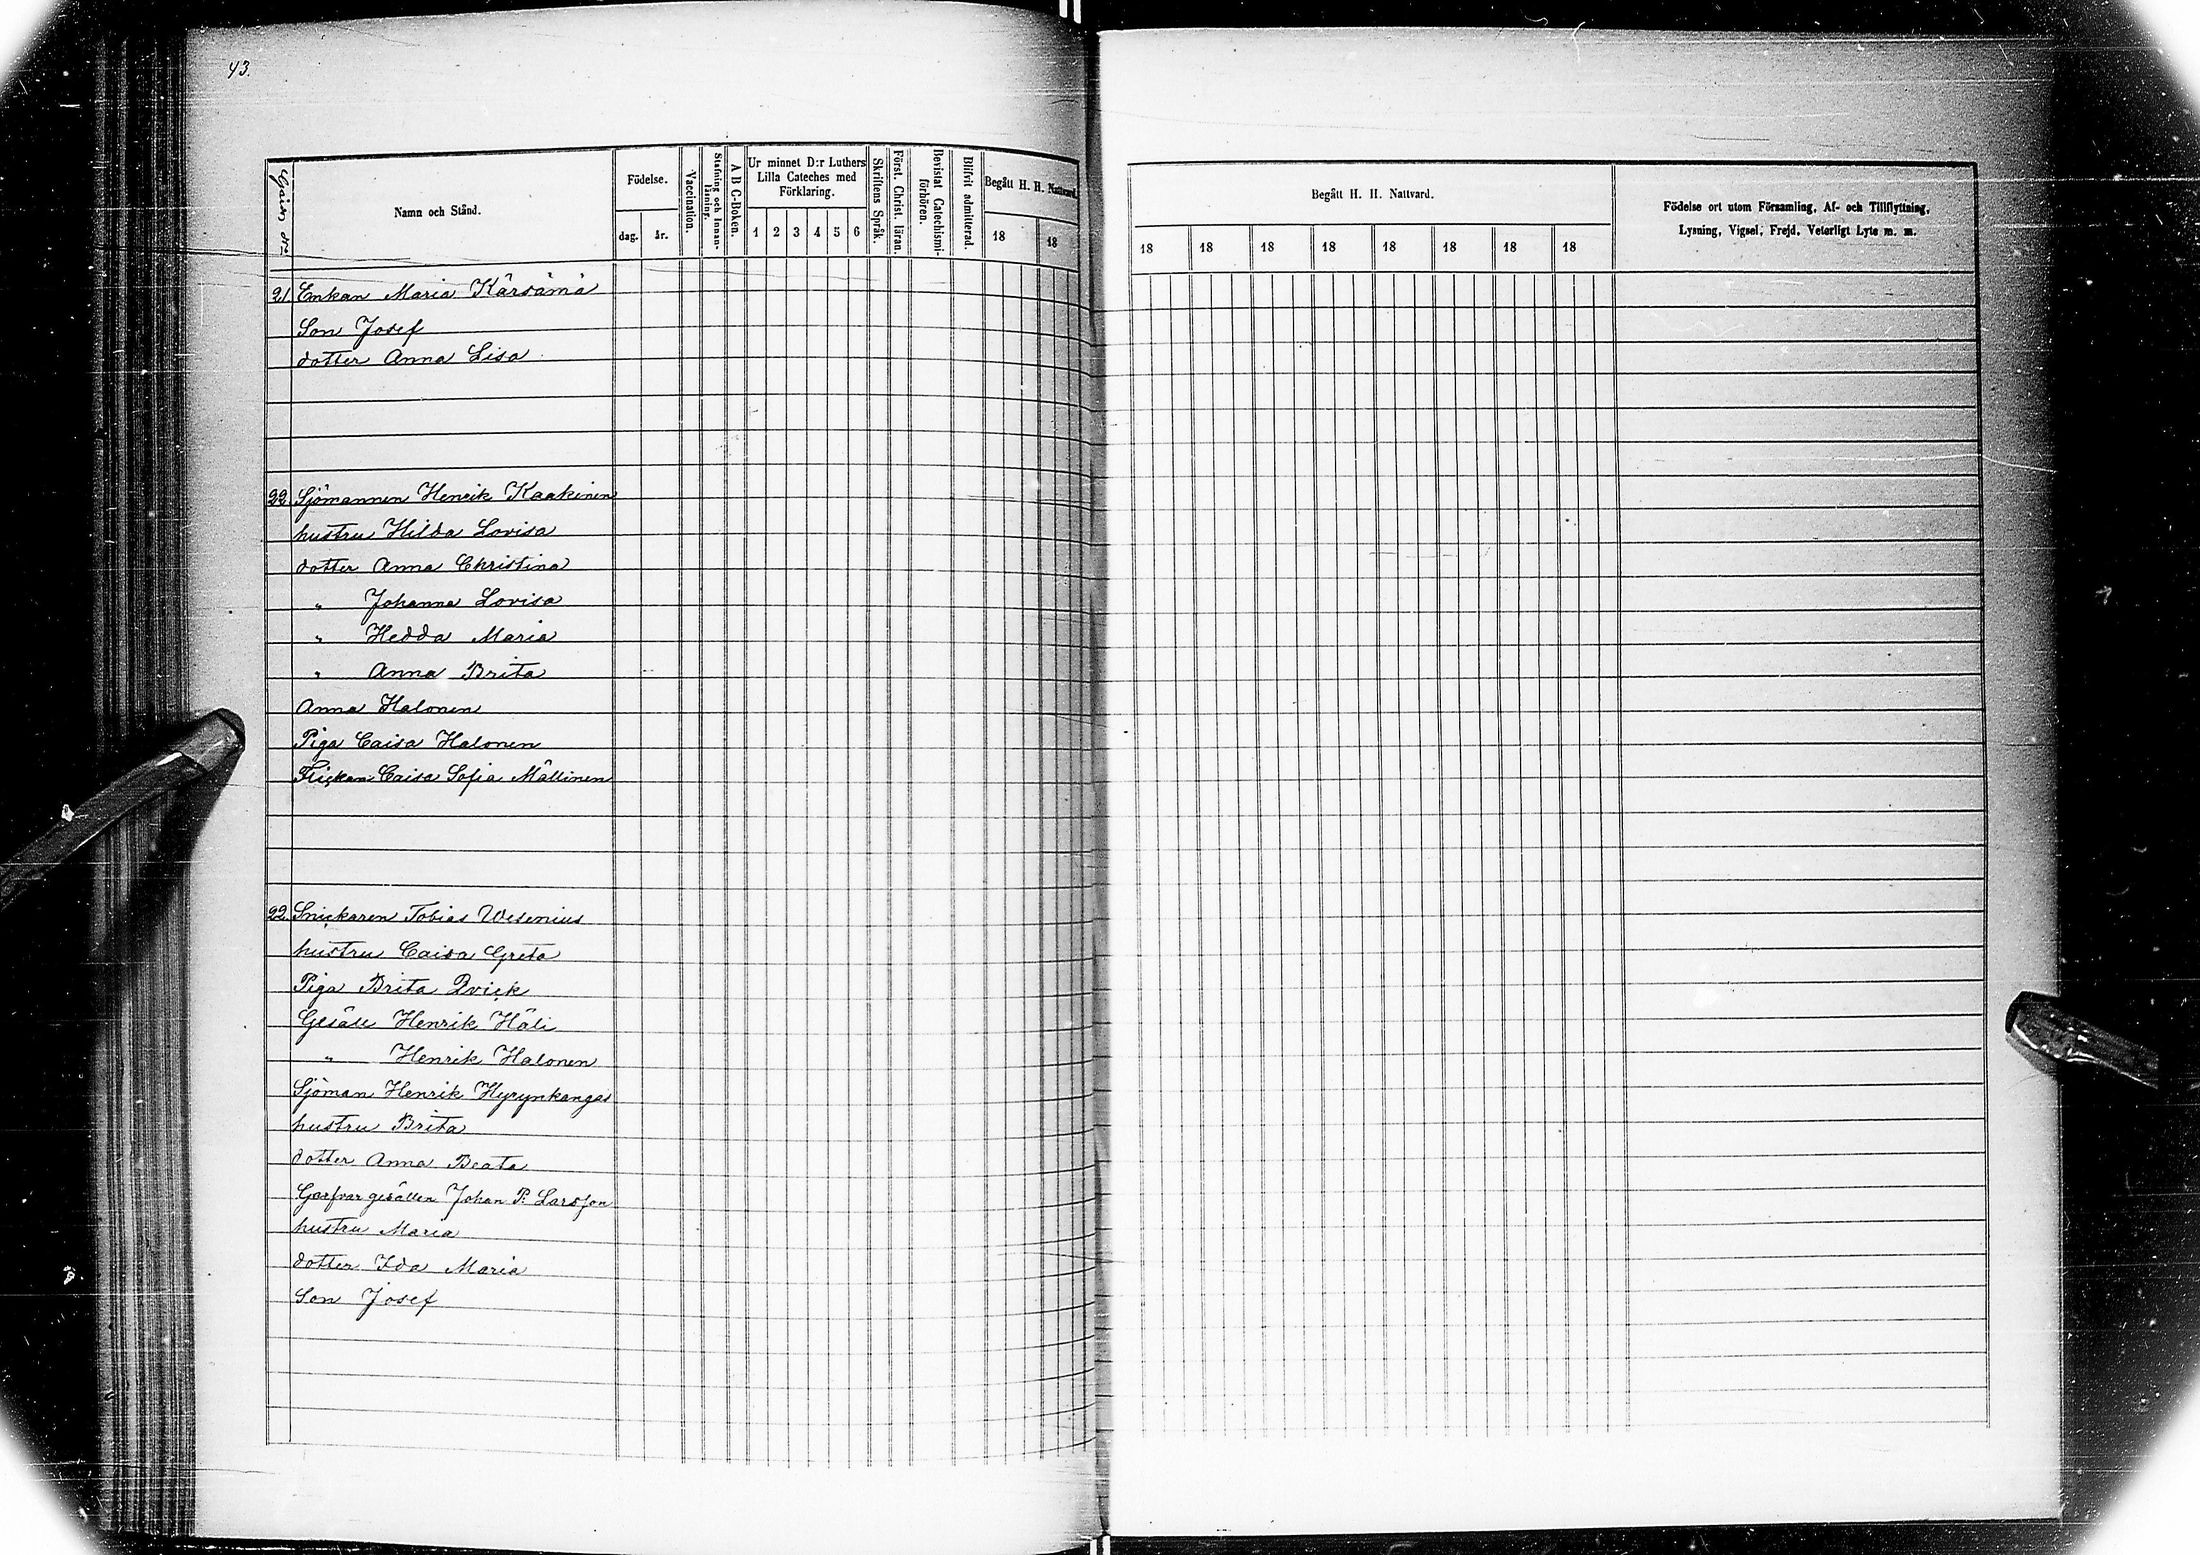 43.
Gård N:o
Namn och Stånd.
Födelse.
dag.
år.
Vaccination.
Stafning och Innan-
läsning.
A B C-Boken.
Ur minnet D:r Luthers
Lilla Cateches med
Förklaring.
1 2 3 4 5 6
Skriftens Språk.
Först. Christ. läran.
Bevistat Catechismi-
förhören.
Blifvit admitterad.
Begått H. H. Nattvard.
18 18
Begått H. H. Nattvard.
18 18 18 18 18 18 18 18
Födelse ort utom Församling, Af- och Tillflyttning,
Lysning, Vigsel, Frejd, Veterligt Lyte m. m.
21 Enkan Maria Kärsämä
Son Josef
dotter Anna Lisa
22. Sjömannen Henrik Kaakinen
hustru Hilda Lovisa
dotter Anna Christina
" Johanna Lovisa
" Hedda Maria
" Anna Brita
Anna Halonen
Piga Caisa Halonen
Flickan Caisa Sofia Mällinen
22. Snickaren Tobias Wesenius
hustru Caisa Greta
Piga Brita Qvick
Gesäll Henrik Häli
" Henrik Halonen
Sjöman Henrik Hyrynkangas
hustru Brita
dotter Anna Beata
Garfvar gesällen Johan P. Larsson
hustru Maria
dotter Ida Maria
Son Josef